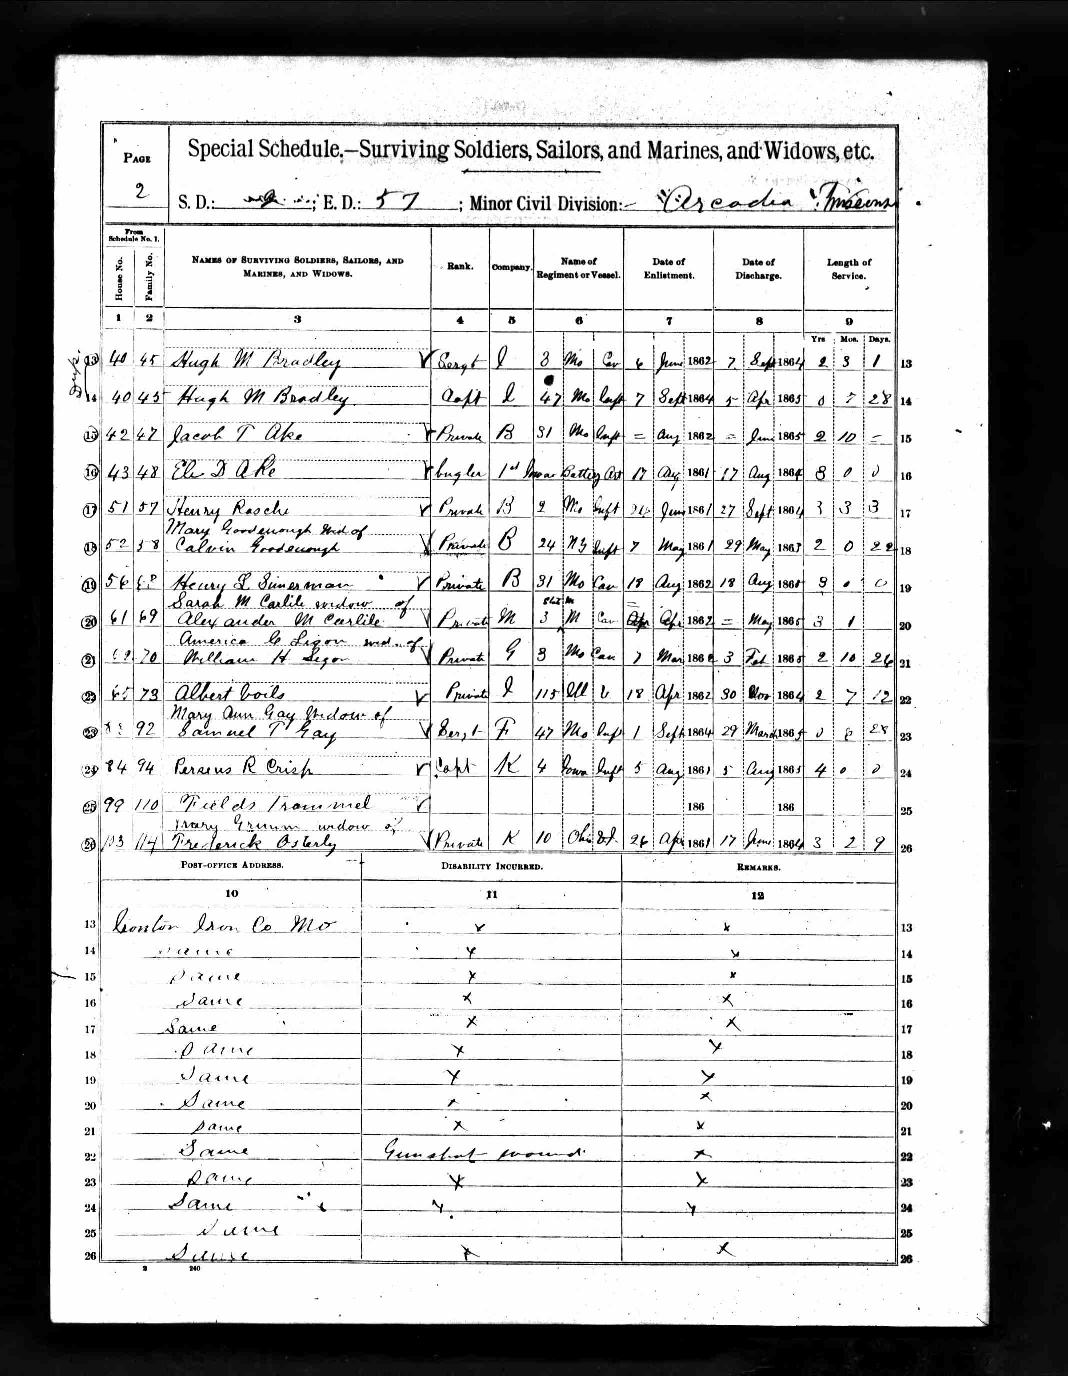 PAGE
2
Special Schedule.—Surviving Soldiers, Sailors, and Marines, and Widows, etc.
S. D.: ; E. D.: 57 ; Minor Civil Division: Arcadia
From Schedule No. 1.
House No. Family No. NAMES OF SURVIVING SOLDIERS, SAILORS, AND MARINES, AND WIDOWS. Rank. Company. Name of Regiment or Vessel. Date of Enlistment. Date of Discharge. Length of Service.
1 2 3 4 5 6 7 8 9
Yrs. Mos. Days.
13 40 45 Hugh M Bradley Sergt I 3 Mo Cav 6 June 1862 7 Sept 1864 2 3 1 13
14 40 45 Hugh M Bradley Capt I 47 Mo Inft 7 Sept 1864 5 Apr 1865 0 7 28 14
15 42 47 Jacob T Ake Private B 31 Mo Inft = Aug 1862 = June 1865 2 10 = 15
16 43 48 Eli D Ake bugler 1st Iowa Battery Art 17 Aug 1861 17 Aug 1864 3 0 0 16
17 51 57 Henry Rasche Private B 2 Mo Inft June 1861 27 Sept 1864 3 3 3 17
Mary Goodenough Wid of
18 52 58 Calvin Goodenough Private B 24 NY Inft 7 May 1861 29 May 1863 2 0 22 18
19 56 Henry L Simerman Private B 31 Mo Cav 18 Aug 1862 18 Aug 1865 3 0 0 19
Sarah M Carlile widow of
20 61 69 Alexander M Carlile Private M 3 M Cav Apr 1862 = May 1865 3 1 20
America C Ligon wid of
21 70 William H Ligon Private G 3 Mo Cav 7 Mar 186 3 Feb 1865 2 10 26 21
22 65 73 Albert Voils Private I 115 Ill V 18 Apr 1862 30 Nov 1864 2 7 12 22
Mary Ann Gay Widow of
23 92 Samuel T Gay Sergt F 47 Mo Inft 1 Sept 1864 29 March 1865 0 6 28 23
24 84 94 Perseus R Crisp Capt K 4 Iowa Inft 5 Aug 1861 5 Aug 1865 4 0 0 24
25 99 110 Fields Trammel 186 186 25
Mary Grimm widow of
26 103 114 Frederick Osterly Private K 10 Ohio 26 Apr 1861 17 June 1864 3 2 9 26
POST-OFFICE ADDRESS. DISABILITY INCURRED. REMARKS.
10 11 12
13 Ironton Iron Co Mo x x 13
14 Same x x 14
15 Same x x 15
16 Same x x 16
17 Same x x 17
18 Same x x 18
19 Same x x 19
20 Same x x 20
21 Same x x 21
22 Same Gunshot wound x 22
23 Same x x 23
24 Same x x 24
25 Same 25
26 Same x x 26
2 240